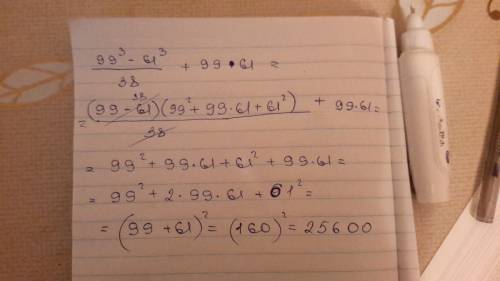 (99³ - 61³)/38 + 99 • 61 =
= ((99 - 61)(99² + 99·61 + 61²))/38 + 99·61 =
= 99² + 99·61 + 61² + 99·61 =
= 99² + 2·99·61 + 61² =
= (99 + 61)² = (160)² = 25600